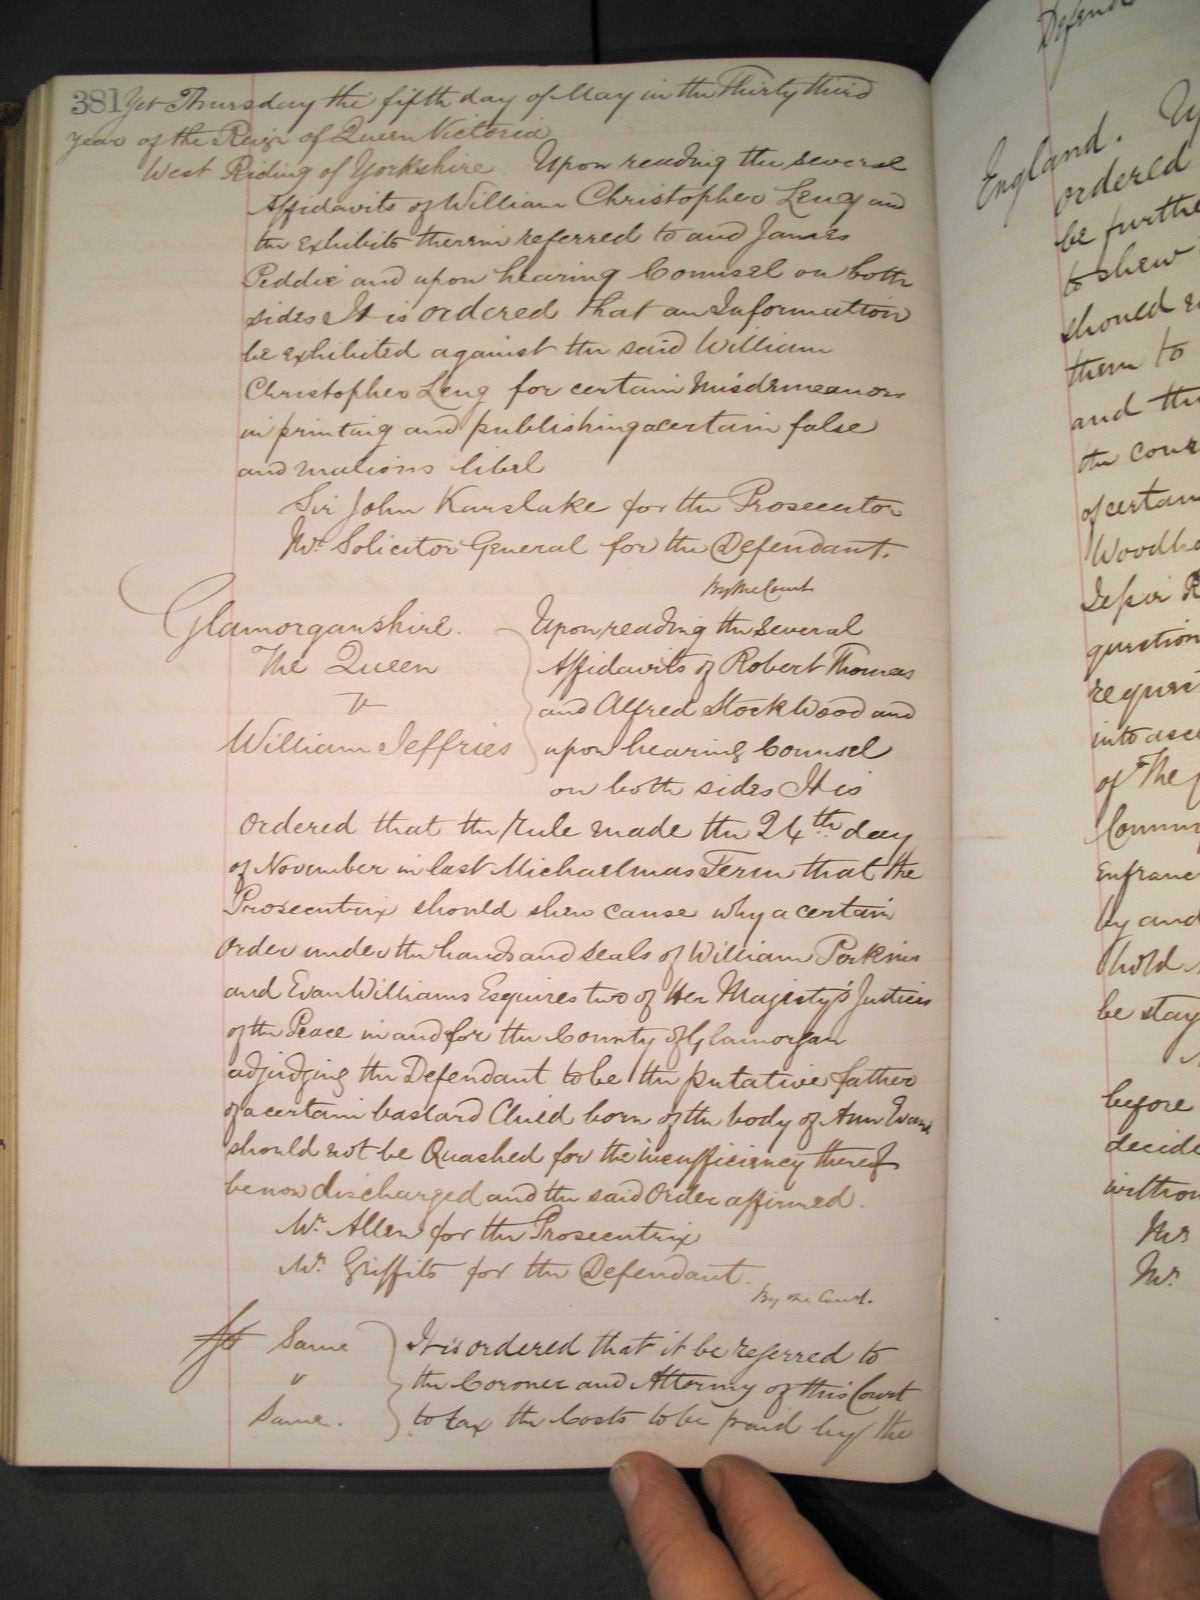 381 Yet Thursday the fifth day of May in the Thirty third
year of the Reign of Queen Victoria
West Riding of Yorkshire Upon reading the several
Affidavits of William Christopher Leng and
the exhibits therein referred to and James
Peddie and upon hearing Counsel on both
sides It is ordered that an Information
be exhibited against the said William
Christopher Leng for certain Misdemeanors
in printing and publishing a certain false
and malions libel
Sir John Karslake for the Prosecutor
Mr. Solicitor General for the Defendant.
By the Court
Glamorganshire.
The Queen
v
William Jeffries
Upon reading the several
Affidavits of Robert Thomas
and Alfred Stock Wood and
upon hearing Counsel
on both sides It is
ordered that the Rule made the 24th. day
of November in last Michaelmas Term that the
Prosecutrix should shew cause why a certain
Order under the hands and seals of William Perkins
and Evan Williams Esquires two of Her Majesty's Justices
of the Peace in and for the County of Glamorgan
adjudging the Defendant to be the putative father
of a certain bastard Child born of the body of Ann Evans
should not be Quashed for the insufficiency thereof
be now discharged and the said Order affirmed.
Mr. Allen for the Prosecutrix
Mr. Griffits for the Defendant.
By the Court.
Same
v
Same.
It is ordered that it be referred to
the Coroner and Attorney of this Court
to tax the Costs to be paid by the
England.
ordered
be furthe
to shew
should
them to
and the
the cour
of certain
Woodho
question
requir
into
of The
Commu
Enfranc
by and
hold
be stay
before
decide
withou
Mr
Mr.